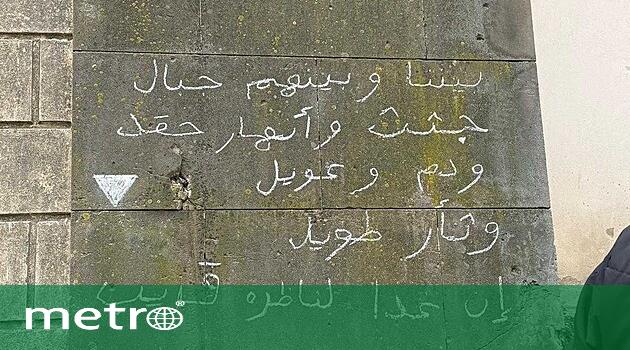 بيننا وبينهم جبال
جثث وأنهار حقد
ودم وعويل
وثأر طويل
إن غدا لناظره قريب
metro